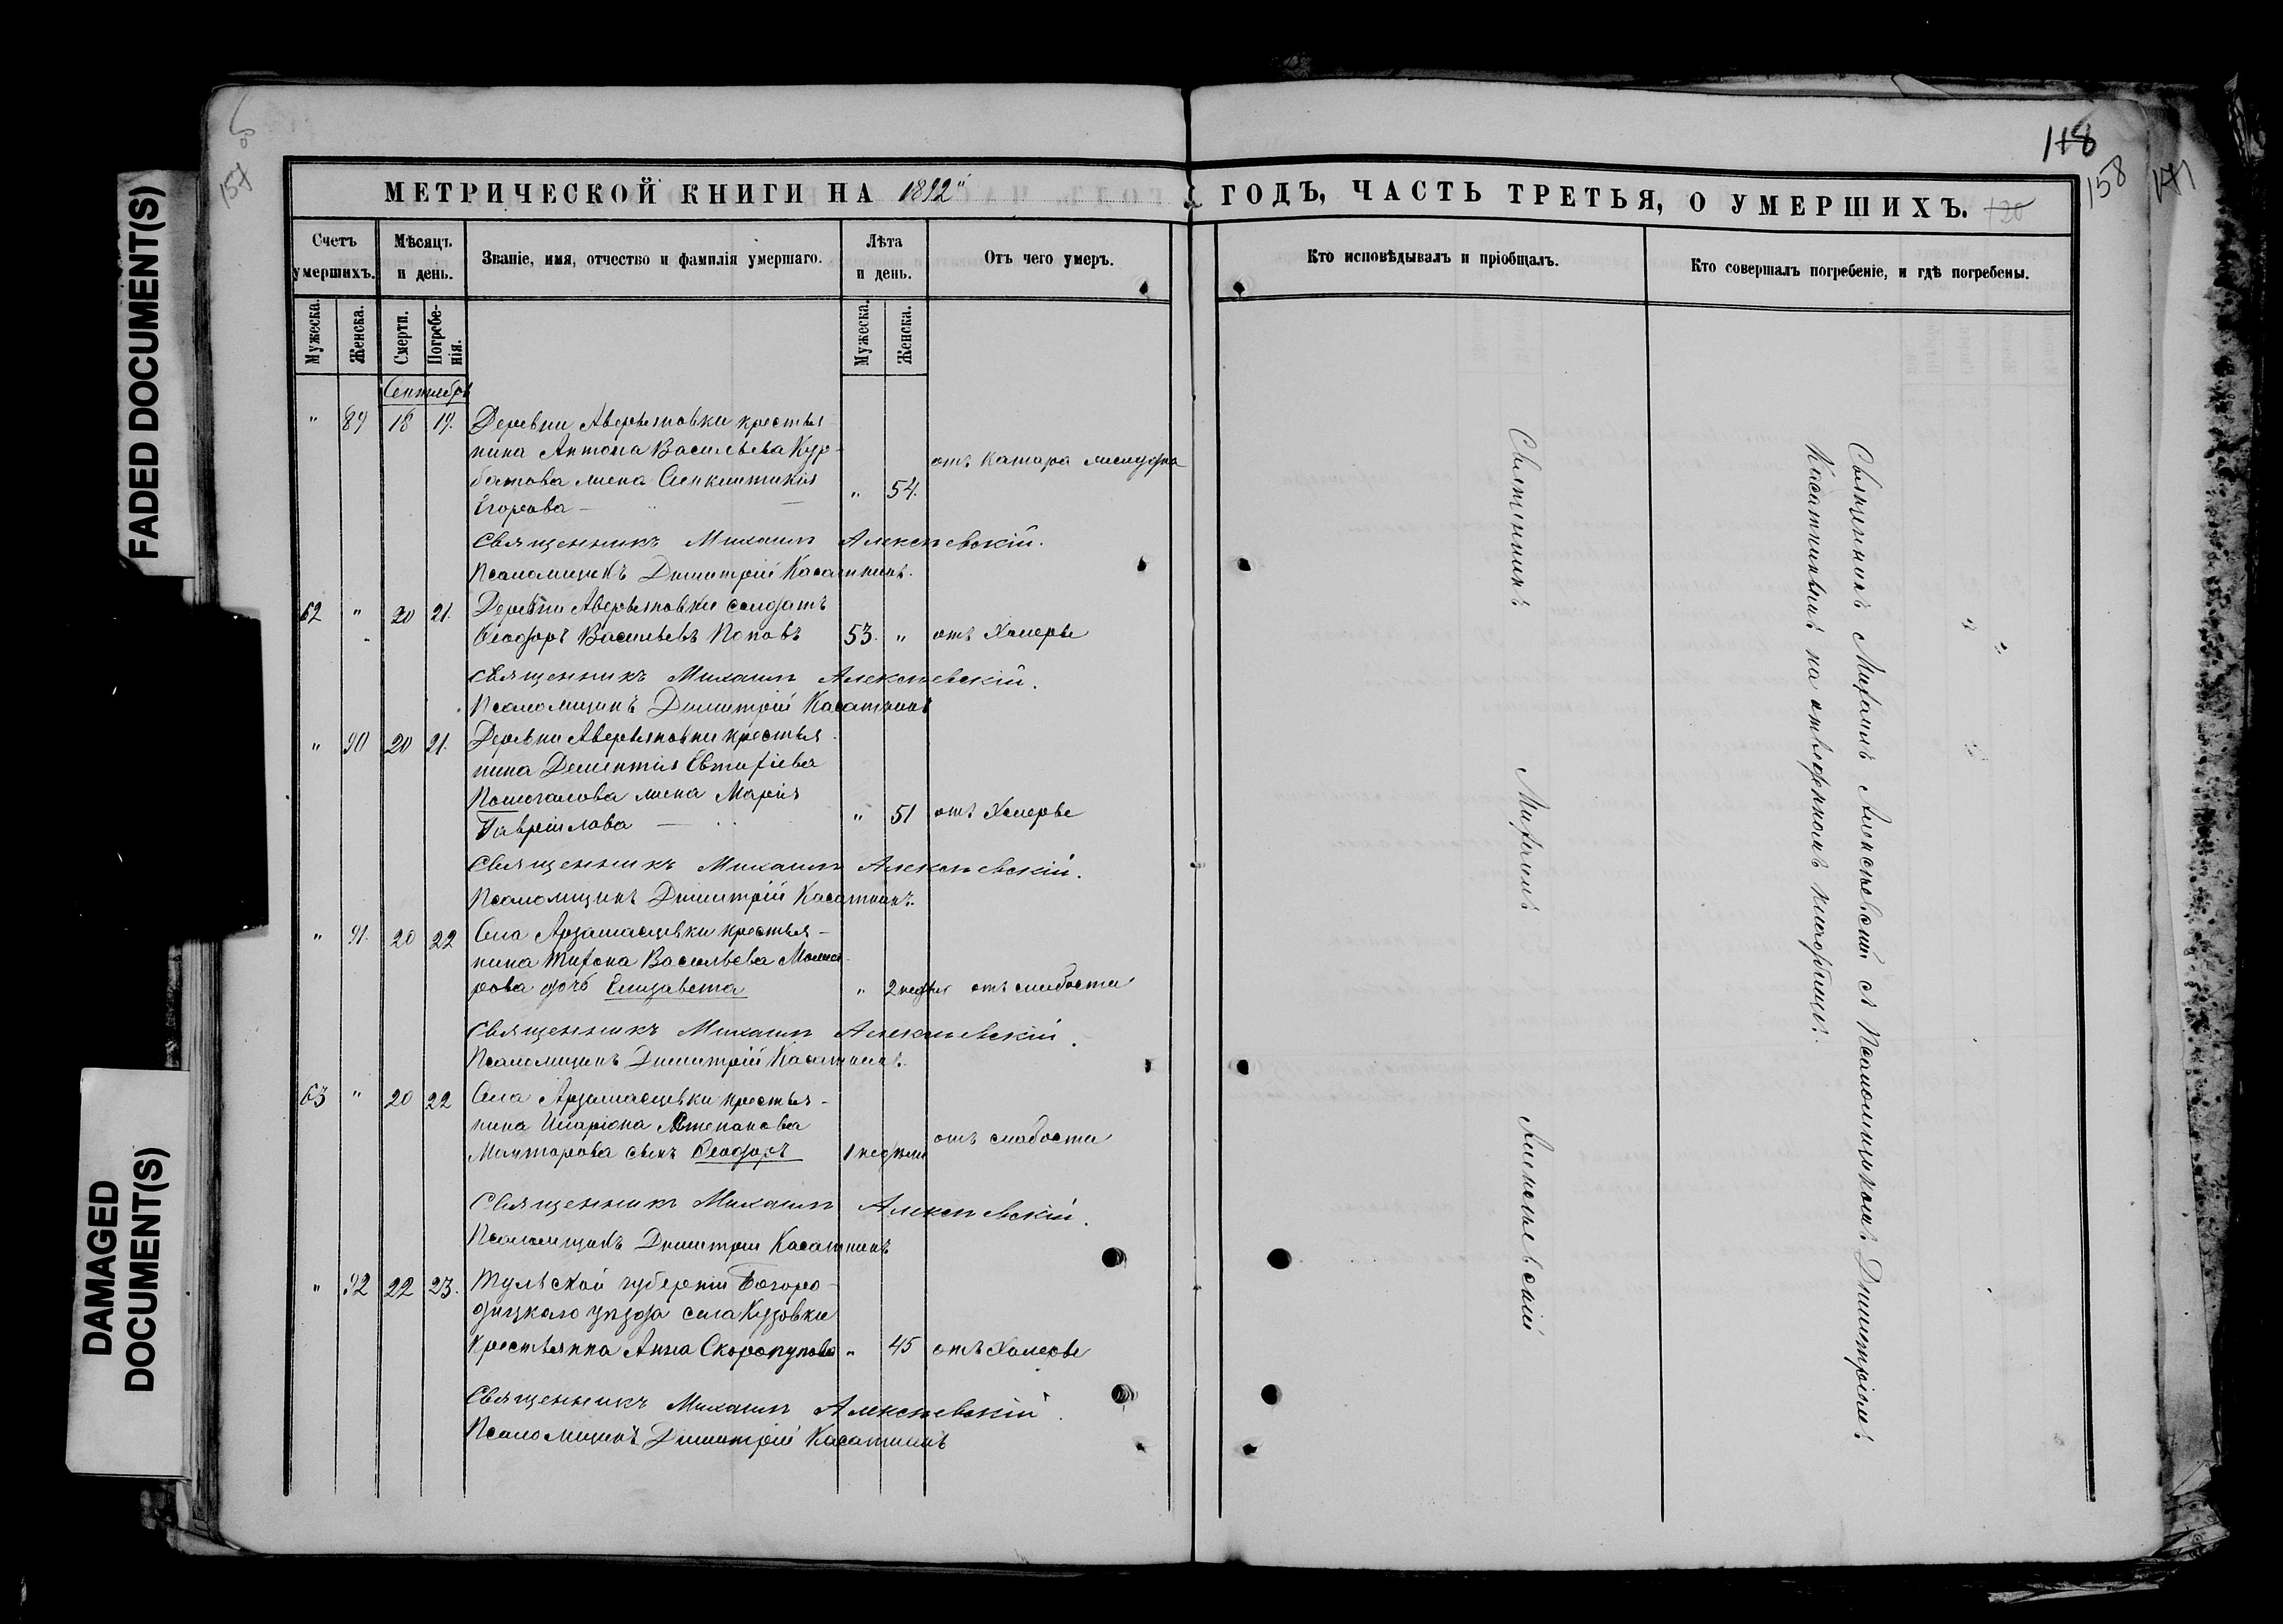 FADED DOCUMENT(S)
DAMAGED
DOCUMENT(S)
157
118
158
171
МЕТРИЧЕСКОЙ КНИГИ НА 1892й ГОДЪ, ЧАСТЬ ТРЕТЬЯ, О УМЕРШИХЪ. 120
Счетъ умершихъ.
Мѣсяцъ и день.
Званіе, имя, отчество и фамилія умершаго.
Лѣта и день.
Отъ чего умеръ.
Кто исповѣдывалъ и пріобщалъ.
Кто совершалъ погребеніе, и гдѣ погребены.
Мужеска.
Женска.
Смерти.
Погребе-
нія.
Мужеска.
Женска.
Сентябрь
" 89 18 19. Деревни Аверьяновки крестья
нина Антона Васильева Кур-
батова жена
Егорова " 54. отъ Катара желудка
Священникъ Михаилъ Алексѣевскій.
Псаломщикъ Димитрій Касаткинъ.
62 " 20 21. Деревни Аверьяновки солдатъ
Ѳеодоръ Васильевъ Поповъ 53. " отъ Холеры
Священникъ Михаилъ Алексѣевскій.
Псаломщикъ Димитрій Касаткинъ
" 90 20 21. Деревни Аверьяновки крестья
нина Дементія Евтифіева
жена Марія
Гаврилова " 51 отъ Холеры
Священникъ Михаилъ Алексѣевскій.
Псаломщикъ Димитрій Касаткинъ.
" 91. 20 22 Села Арзамасцевки крестья-
нина Тихона Васильева
рова дочь Елизавета " 2 недѣл отъ слабости
Священникъ Михаилъ Алексѣевскій.
Псаломщикъ Димитрій Касаткинъ.
63 " 20 22 Села Арзамасцевки крестья-
нина Иларіона Степанова
сынъ Ѳеодоръ 1 недѣли отъ слабости
Священникъ Михаилъ Алексѣевскій.
Псаломщикъ Димитрій Касаткинъ
" 92 22 23. Тульской губерніи Богоро-
дицкаго уѣзда села Кузовки
Крестьянка Анна Скоропупова " 45 отъ Холеры
Священникъ Михаилъ Алексѣевскій.
Псаломщикъ Димитрій Касаткинъ
Священникъ Михаилъ Алексѣевскій
Священникъ Михаилъ Алексѣевскій съ Псаломщикомъ Димитріемъ
Касаткинымъ на отведенномъ кладбищѣ.